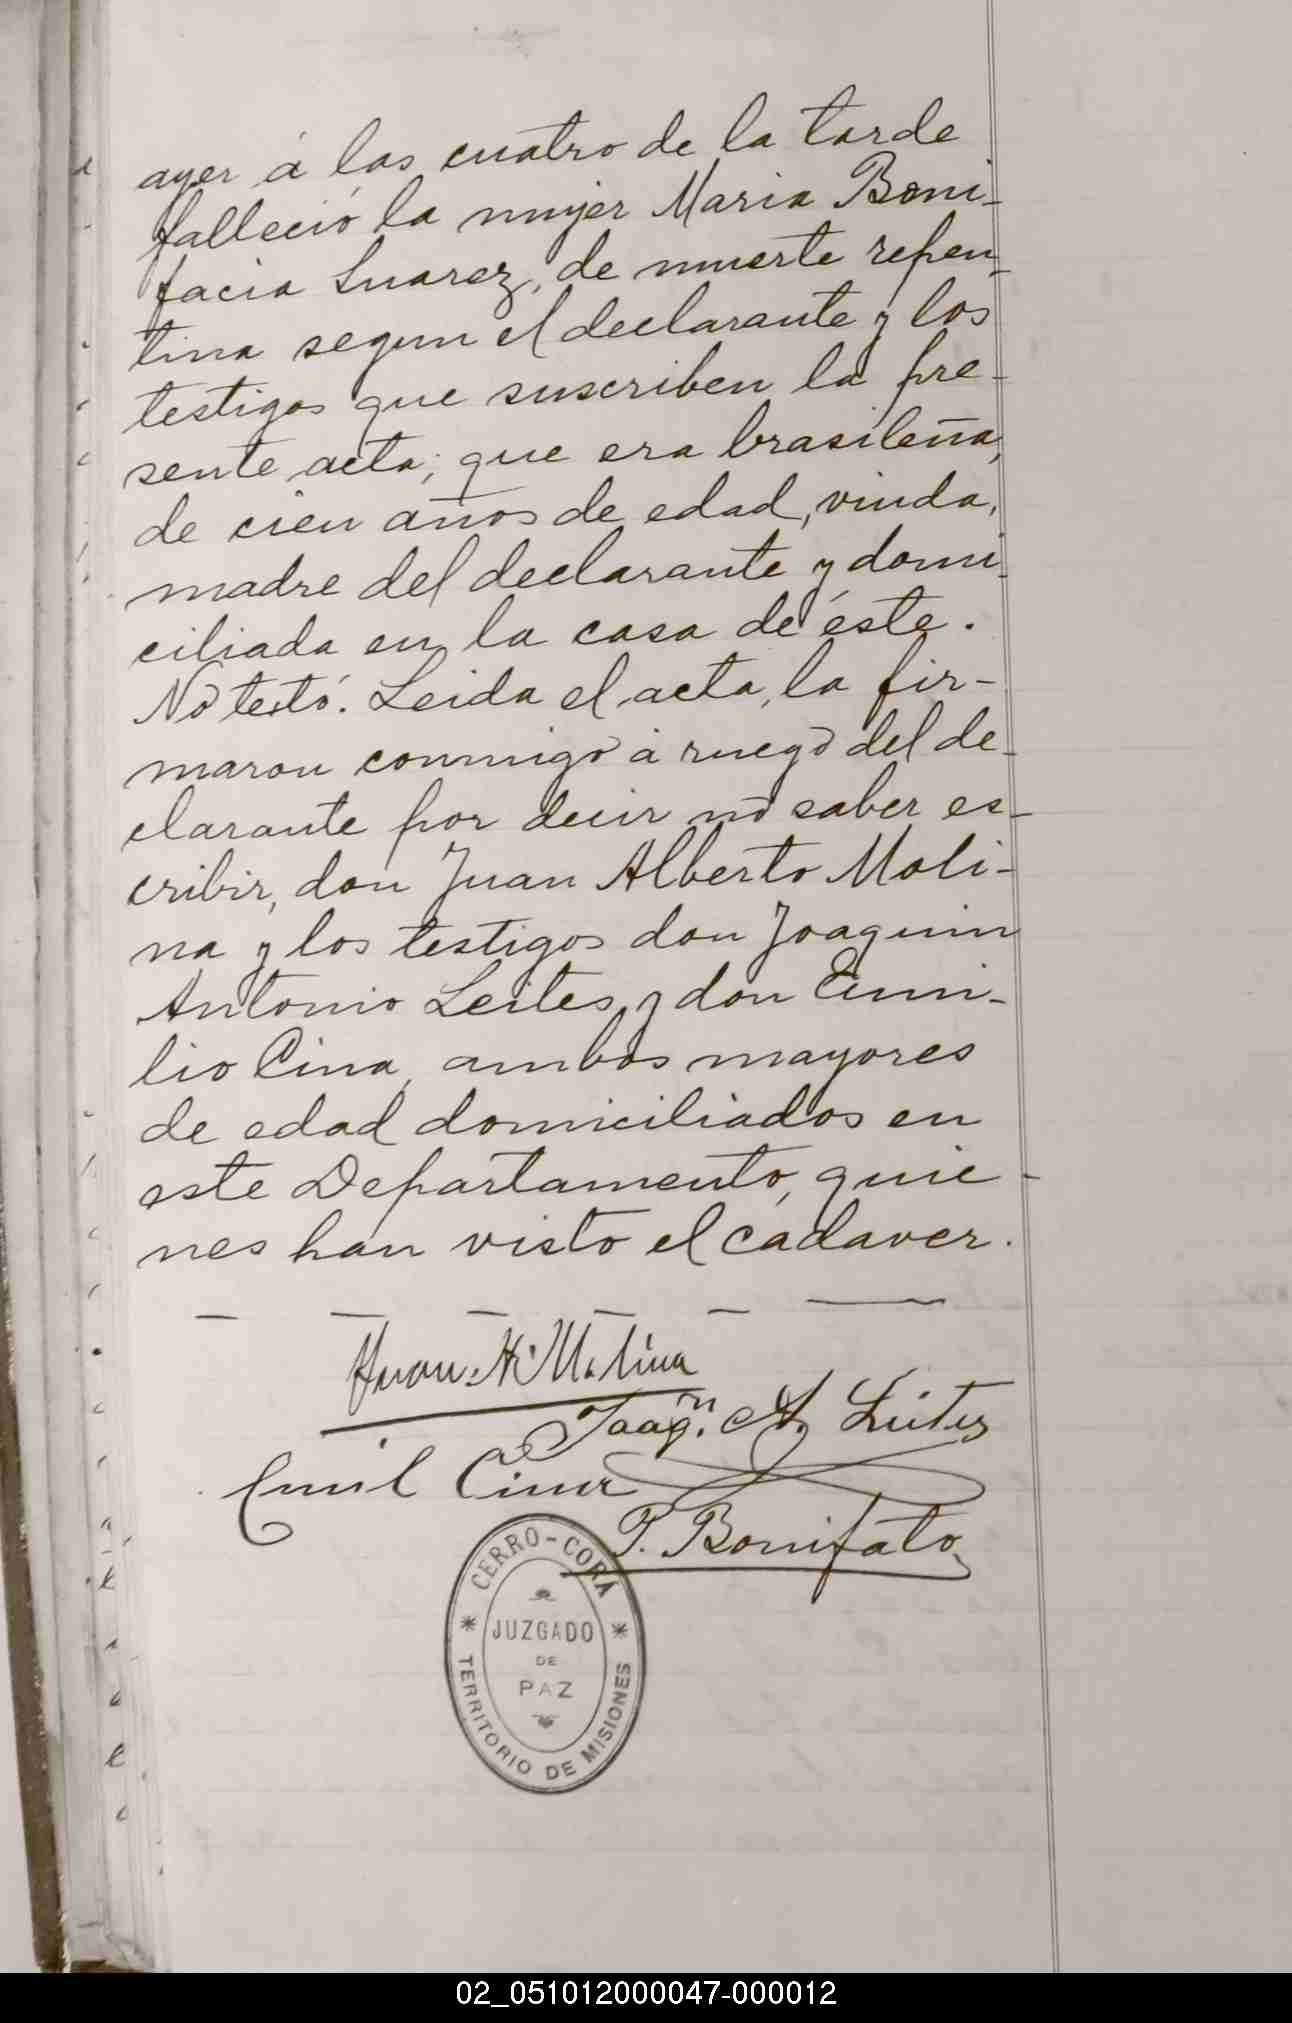 ayer á las cuatro de la tarde
falleció la mujer Maria Boni-
facia Suarez, de muerte repen-
tina segun el declarante y los
testigos que suscriben la pre-
sente acta; que era brasileña,
de cien años de edad, viuda,
madre del declarante y domi-
ciliada en la casa de éste.
No testó. Leida el acta, la fir-
maron conmigo á ruego del de-
clarante por decir no saber es-
cribir, don Juan Alberto Moli-
na y los testigos don Joaquin
Antonio Leites y don Emi-
lio Cina, ambos mayores
de edad domiciliados en
este Departamento, quie-
nes han visto el cadaver.
Juan A. Molina
Joaqn. A. Leites
Emil Cina
P. Bonifato
CERRO-CORÁ
JUZGADO
DE
PAZ
TERRITORIO DE MISIONES
02_051012000047-000012